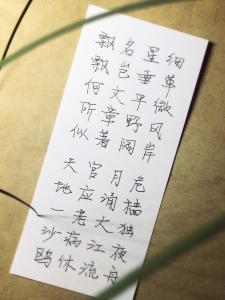 细草微风岸 危樯独夜舟
星垂平野阔 月涌大江流
名岂文章著 官应老病休
飘飘何所似 天地一沙鸥